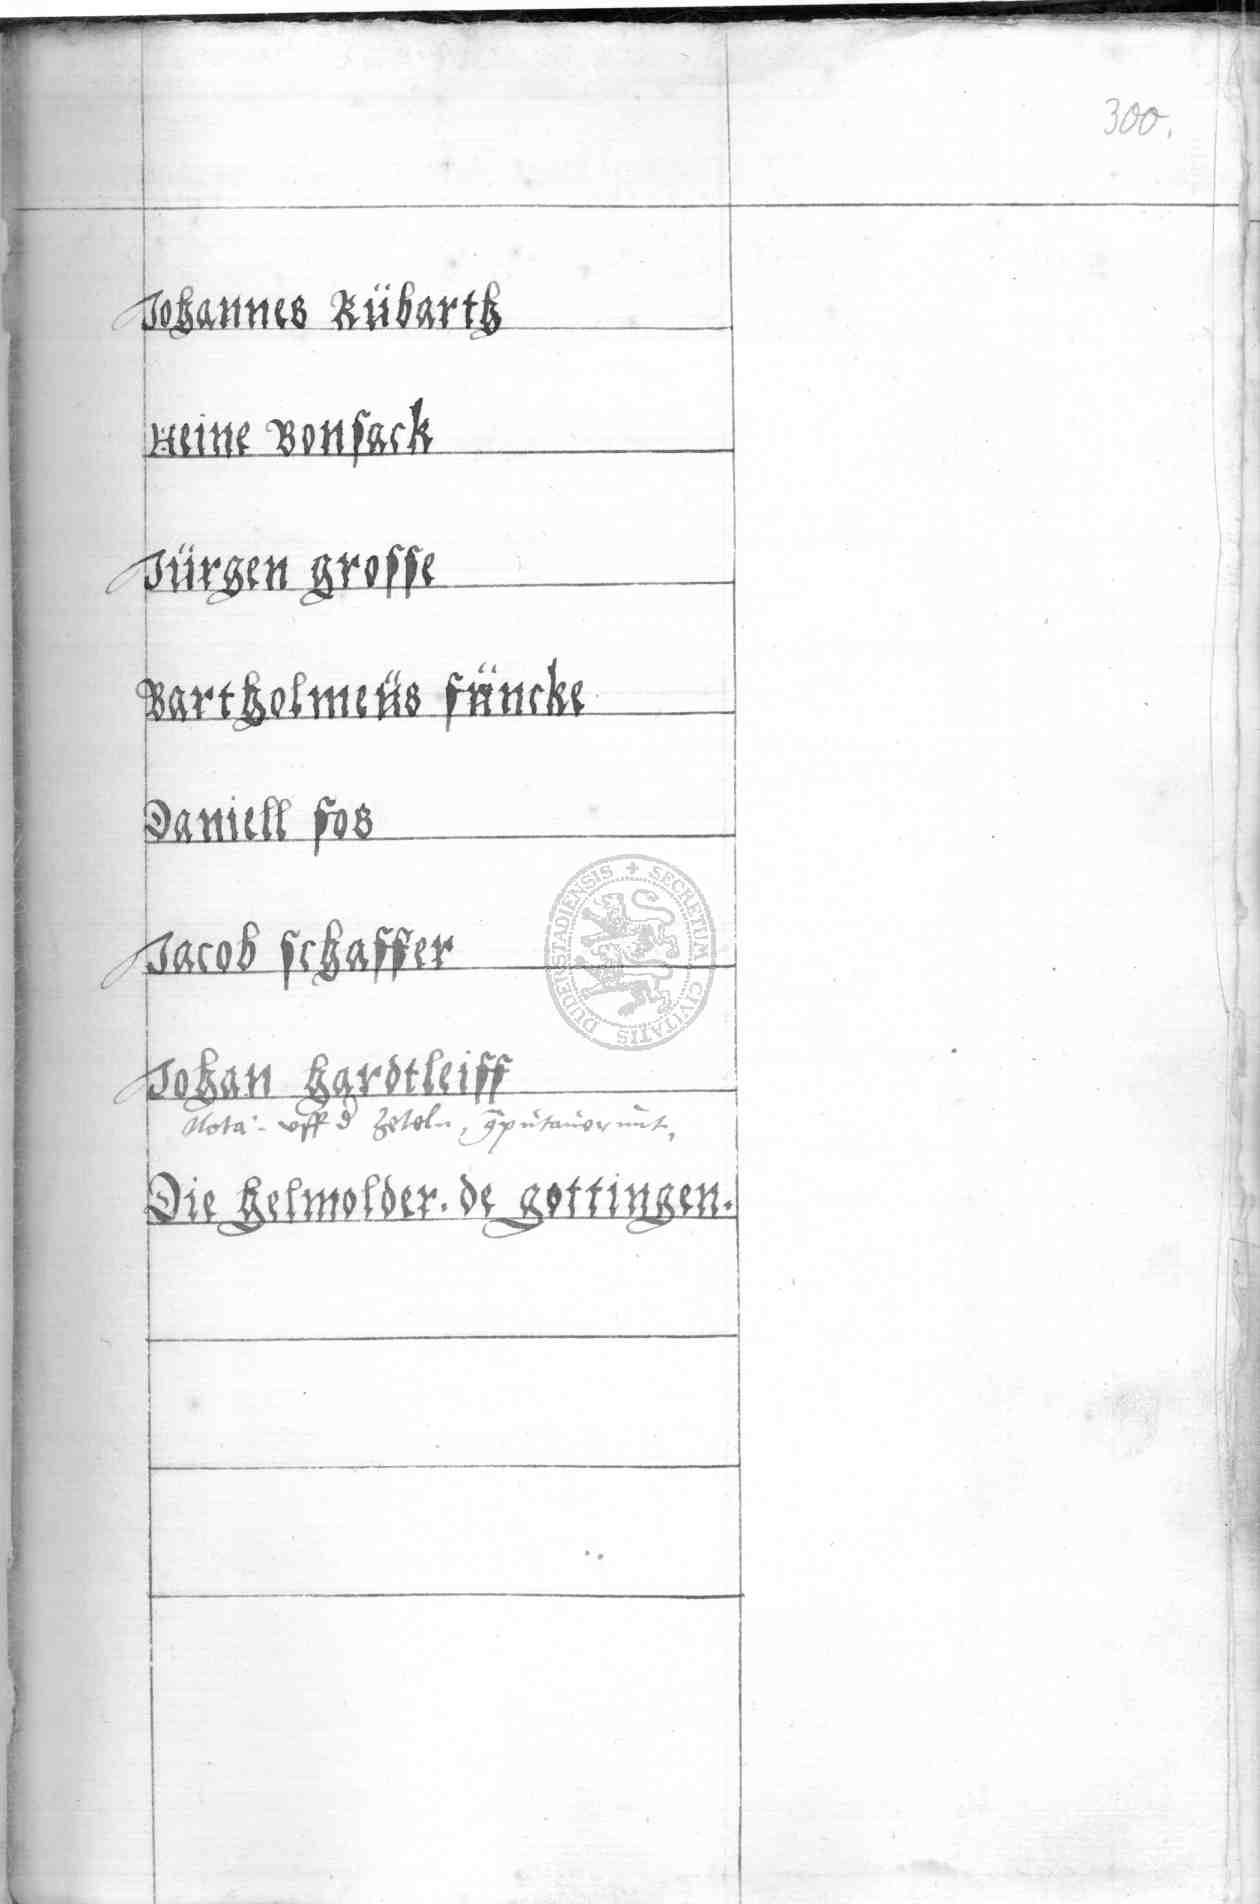 300.
Johannes Rübarth
Heine Bonsack
Jürgen grosse
Bartholmeüs füncke
Daniell fos
Jacob schaffer
SECRETUM CIVITATIS DUDERSTADIENSIS
Johan hardtleiff
Nota uff d Zeteln,
Die helmolder. de gottingen.